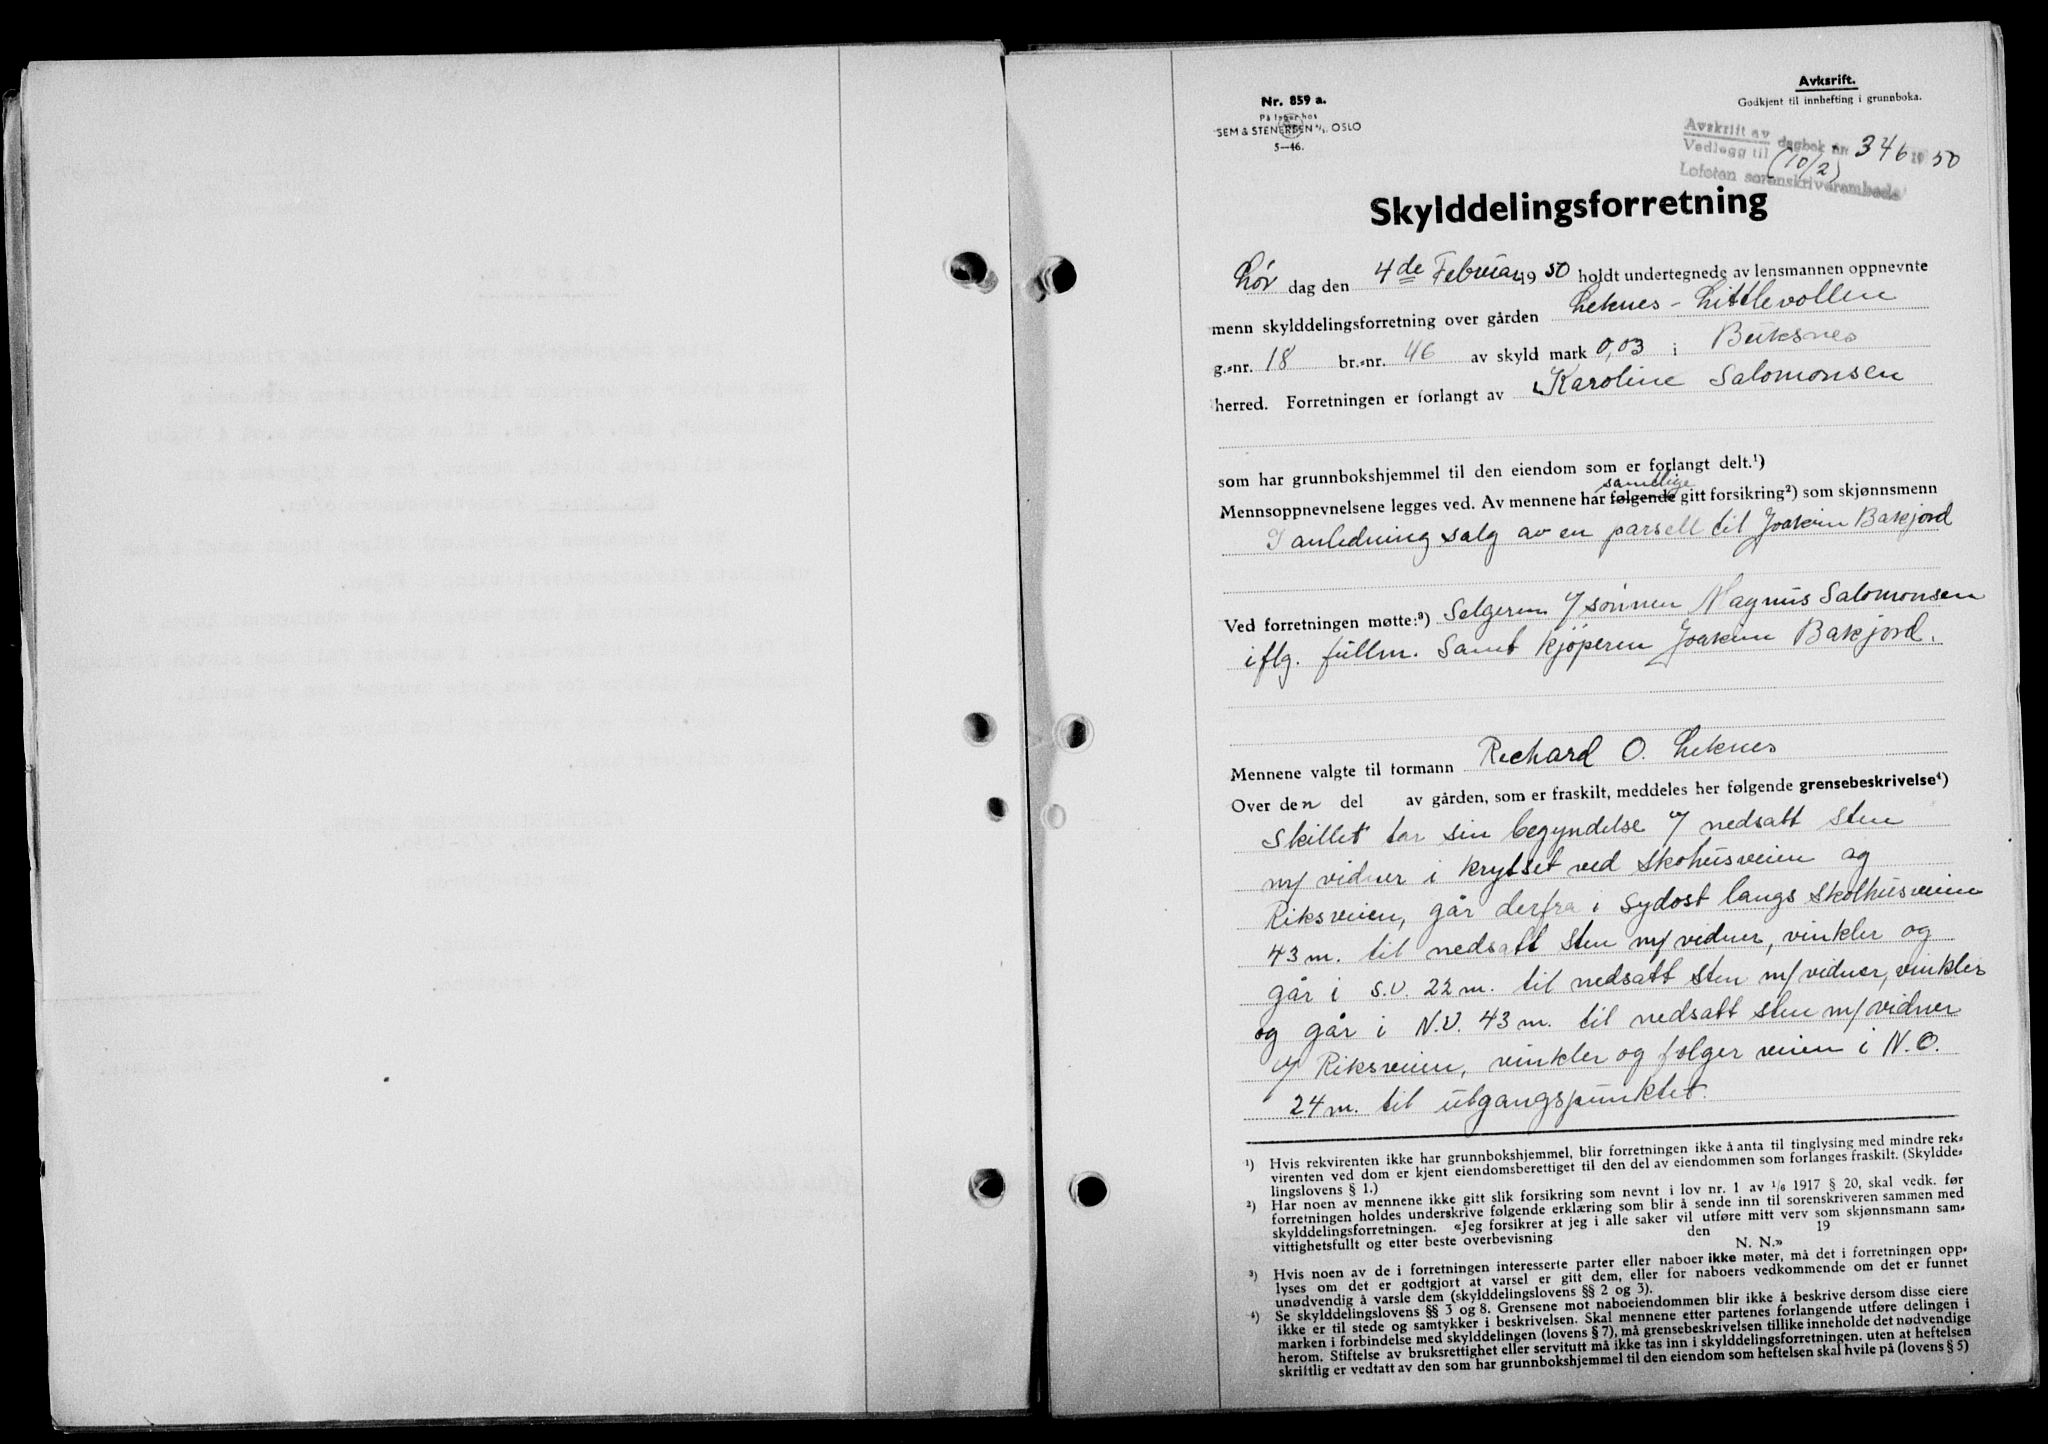 Avksrift.
Godkjent til innhefting i grunnboka.
Nr. 859 a.
På lager hos
SEM & STENERSEN A/S, OSLO
5—46.
Avskrift av
Vedlegg til dagbok nr. 346 19 50
(10/2)
Lofoten sorenskriverembede
Skylddelingsforretning
Lør dag den 4de Februar 1950 holdt undertegnede av lensmannen oppnevnte
menn skylddelingsforretning over gården Leknes - Littlevollen
g.-nr. 18 br.-nr. 46 av skyld mark 0,03 i Buksnes
herred. Forretningen er forlangt av Karoline Salomonsen
som har grunnbokshjemmel til den eiendom som er forlangt delt.¹)
samtlige
Mennsoppnevnelsene legges ved. Av mennene har følgende gitt forsikring²) som skjønnsmenn
I anledning salg av en parsell til Joakim Bakjord
Ved forretningen møtte:³) Selgeren v/ sønnen Magnus Salomonsen
iflg. fullm. Samt kjøperen Joakim Bakjord.
Mennene valgte til formann Richard O. Leknes
Over den del av gården, som er fraskilt, meddeles her følgende grensebeskrivelse⁴)
Skillet tar sin begyndelse v/ nedsatt sten
m/ vidner i krysset ved Skohusveien og
Riksveien, går derfra i Sydost langs Skolhusveien
43 m. til nedsatt sten m/ vidner, vinkler og
går i S.V. 22 m. til nedsatt sten m/ vidner, vinkler
og går i N.V. 43 m. til nedsatt sten m/ vidner
v/ Riksveien, vinkler og følger veien i N.O.
24 m. til utgangspunktet.
¹) Hvis rekvirenten ikke har grunnbokshjemmel, blir forretningen ikke å anta til tinglysing med mindre rek-
virenten ved dom er kjent eiendomsberettiget til den del av eiendommen som forlanges fraskilt. (Skyldde-
lingslovens § 1.)
²) Har noen av mennene ikke gitt slik forsikring som nevnt i lov nr. 1 av 1/6 1917 § 20, skal vedk. før
forretningen holdes underskrive følgende erklæring som blir å sende inn til sorenskriveren sammen med
skylddelingsforretningen. «Jeg forsikrer at jeg i alle saker vil utføre mitt verv som skjønnsmann sam-
vittighetsfullt og etter beste overbevisning den 19
N. N.»
³) Hvis noen av de i forretningen interesserte parter eller naboer ikke møter, må det i forretningen opp-
lyses om det er godtgjort at varsel er gitt dem, eller for naboers vedkommende om det er funnet
unødvendig å varsle dem (skylddelingslovens §§ 2 og 3).
⁴) Se skylddelingslovens §§ 3 og 8. Grensene mot naboeiendommen blir ikke å beskrive dersom disse eiere
ikke er til stede og samtykker i beskrivelsen. Skal mennene etter partenes forlangende utføre delingen i
marken i forbindelse med skylddelingen (lovens § 7), må grensebeskrivelsen tillike inneholde det nødvendige
herom. Stiftelse av bruksrettighet eller servitutt må ikke tas inn i skylddelingsforretningen. uten at heftelsen
skriftlig er vedtatt av den som har grunnbokshjemmel til den eiendom som heftelsen skal hvile på (lovens § 5)